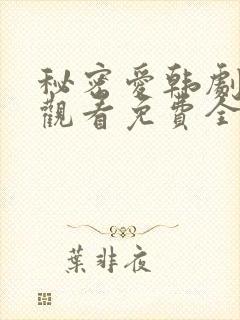 秘密愛韩劇
觀看免費全
葉非夜